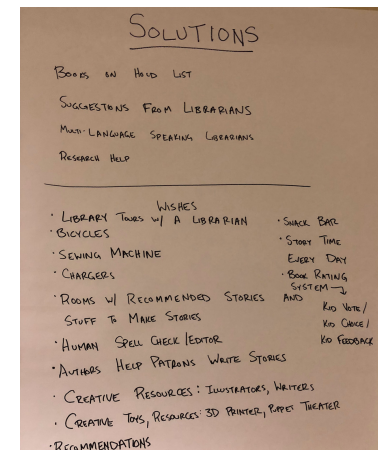 SOLUTIONS
BOOKS ON HOLD LIST
SUGGESTIONS FROM LIBRARIANS
MULTI-LANGUAGE SPEAKING LIBRARIANS
RESEARCH HELP
WISHES
· LIBRARY TOURS W/ A LIBRARIAN
· BICYCLES
· SEWING MACHINE
· CHARGERS
· ROOMS W/ RECOMMENDED STORIES AND
STUFF TO MAKE STORIES
· HUMAN SPELL CHECK/EDITOR
· AUTHORS HELP PATRONS WRITE STORIES
· CREATIVE RESOURCES: ILLUSTRATORS, WRITERS
· CREATIVE TOYS, RESOURCES: 3D PRINTER, PUPPET THEATER
· RECOMMENDATIONS
· SNACK BAR
· STORY TIME
EVERY DAY
· BOOK RATING
SYSTEM →
KID VOTE/
KID CHOICE/
KID FEEDBACK